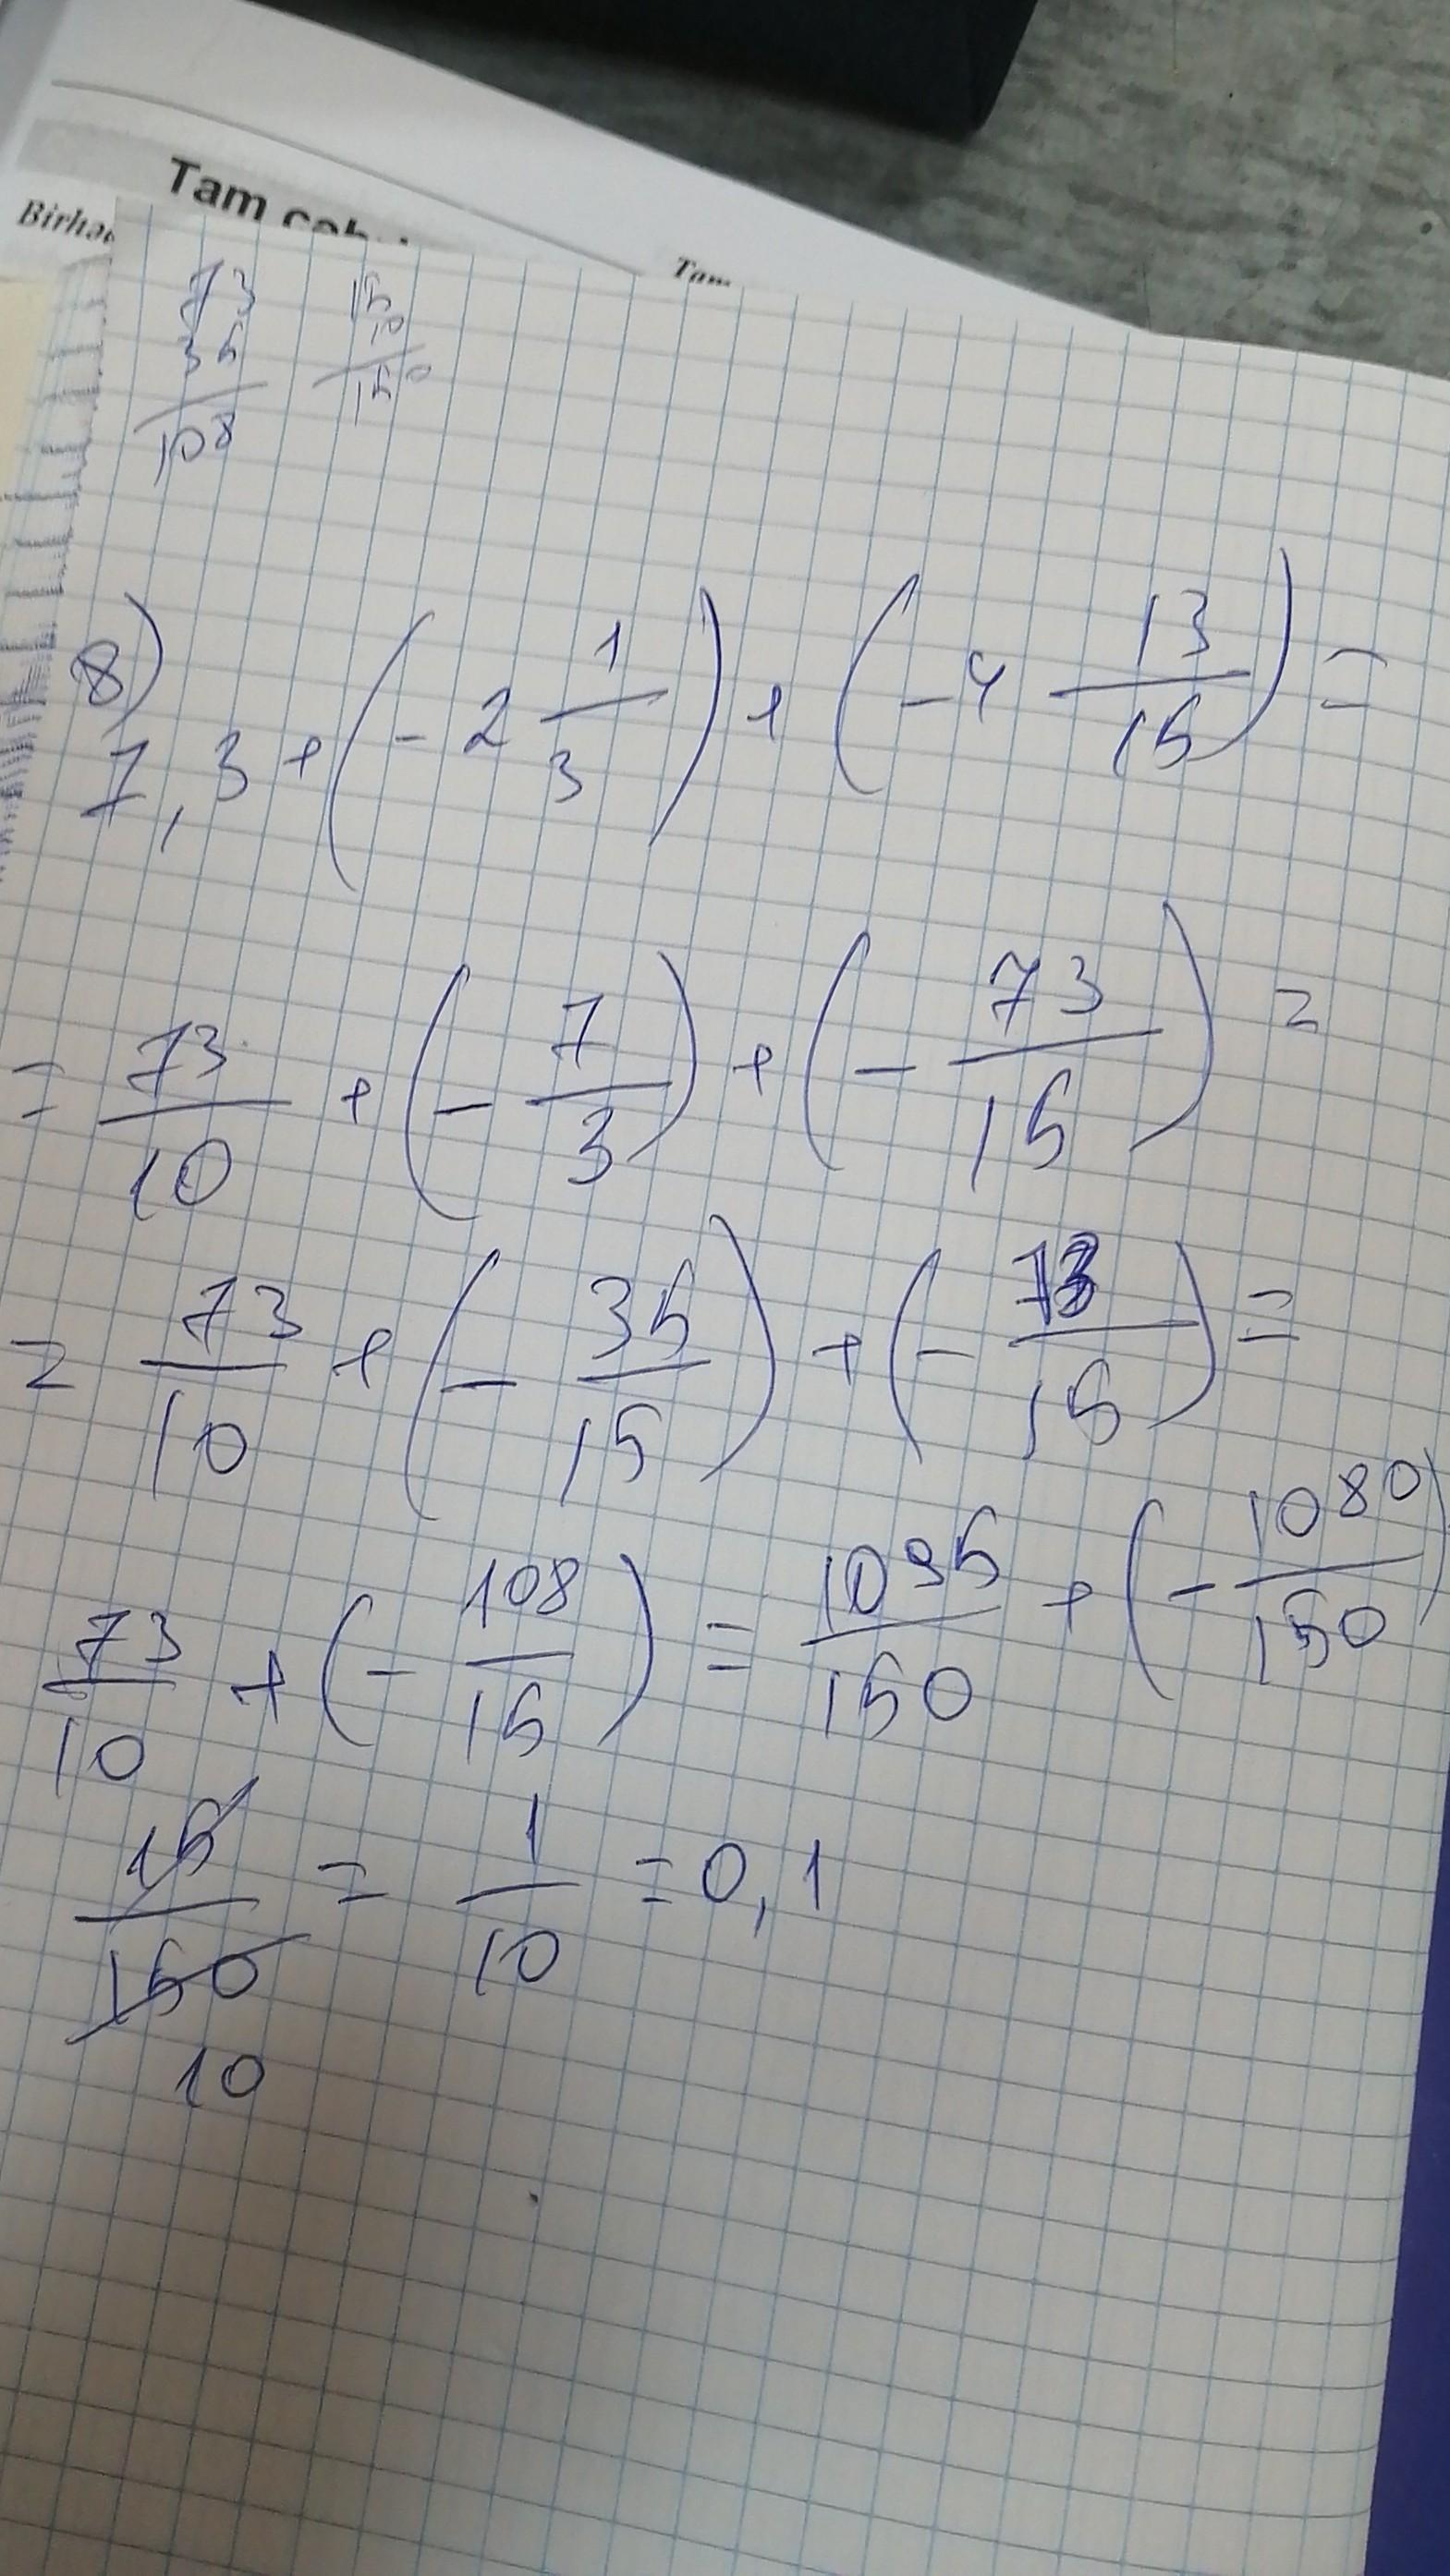 Tam
Birha
Tam
73
35
108
15
10
150
8)
7,3 + (-2 1/3) + (-4 13/15) =
= 73/10 + (- 7/3) + (- 73/15) =
= 73/10 + (- 35/15) + (- 73/15) =
73/10 + (- 108/15) = 1095/150 + (- 1080/150)
15/150 = 1/10 = 0,1
10